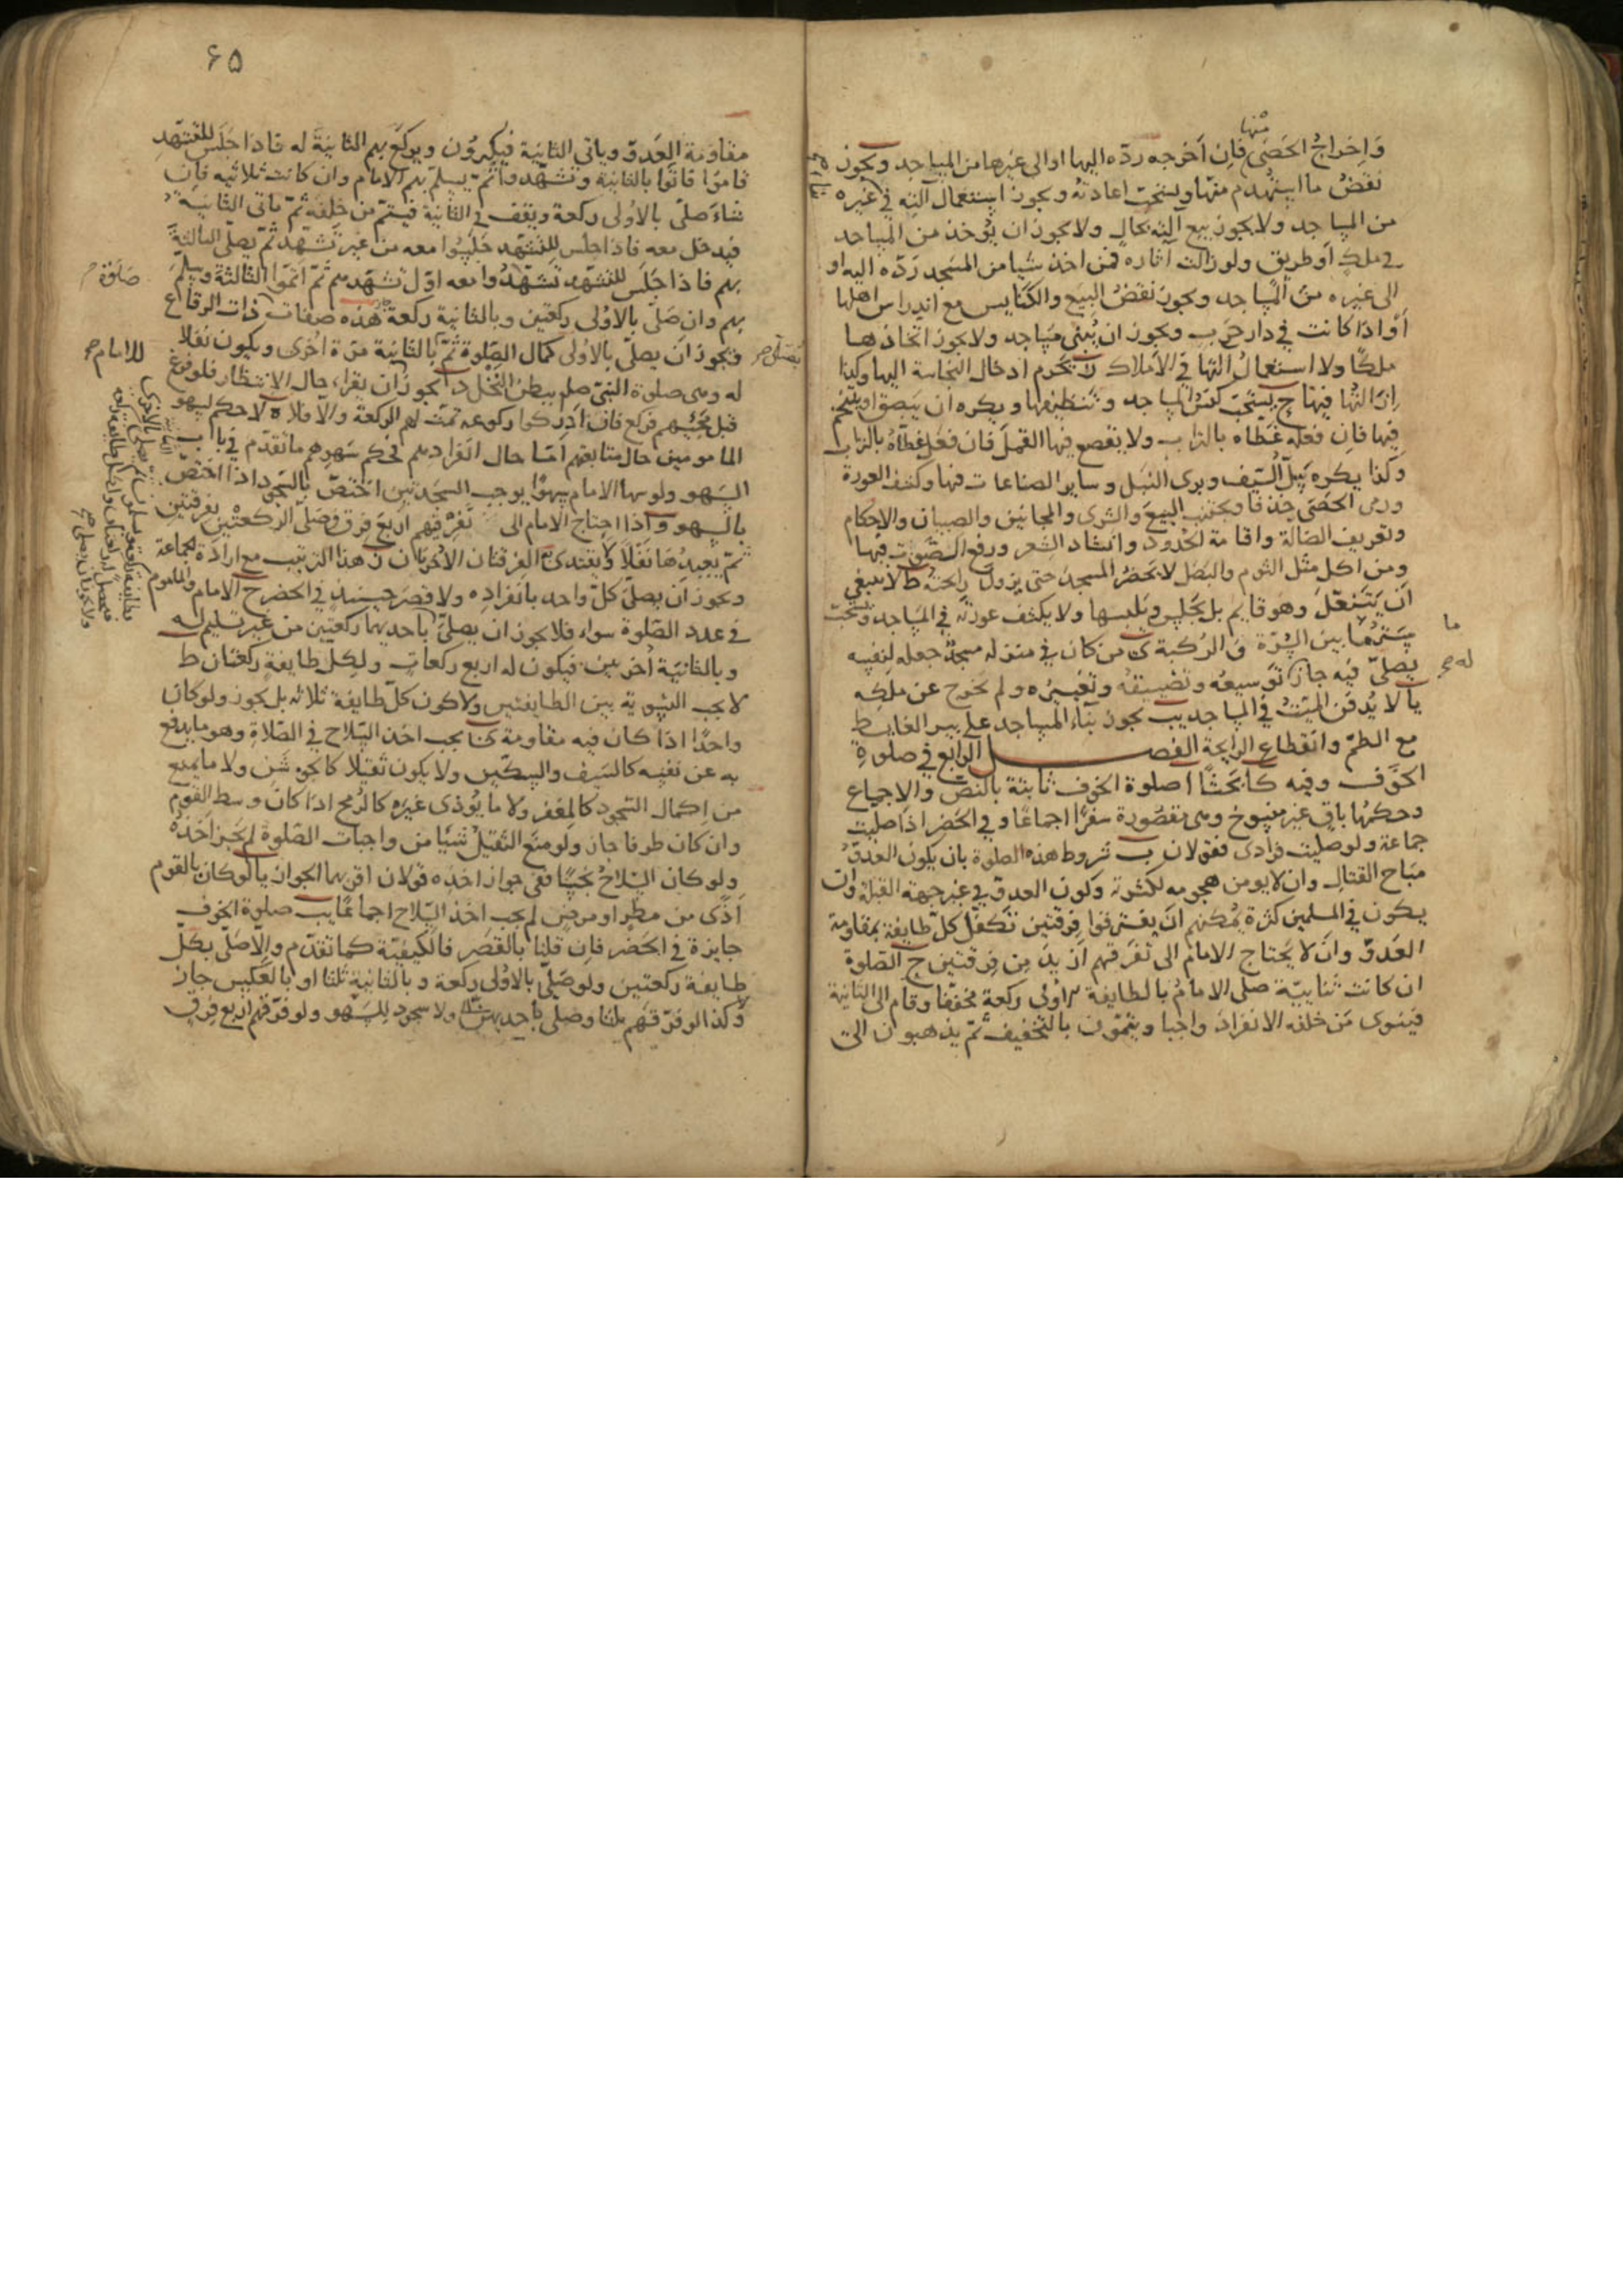 منها
وَاِخراجُ الحَصَى فاِن اَخرجه ردّه اليها او الى غيرها من المساجد ويجوز
نقضُ ما استهدم منها ويستحبّ اعادته ويجوز استعمال آلته في غيره
من المساجد ولا يجوز بيع آلته بحالٍ ولا يجوز ان يؤخذ من المساجد
في ملكٍ او طريق ولو زالت آثاره فمن اخذ شيا من المسجد ردّه اليه او
الى غيره من المساجد ويجوز نقضُ البِيَع والكنايس مع اندراس اهلها
أو اذا كانت في دار حرب ويجوز ان يُبنى مساجد ولا يجوز اتخاذها
ملكًا ولا استعمالُ آلتها في الاَملاك يحرم ادخال النجاسة اليها وكذا
اِزالتُها فيها ج يستحبّ كنسُ المساجد وتنظيفها ويكره ان يبصق او يتنخّم
فيها فاِن فعله غطّاه بالتراب ولا يقصع فيها القمل فان فعل غطّاهُ بالتراب
وكذا يكره سَلّ السّيف وبرى النبل وساير الصناعات فيها وكشف العورة
ورمى الحصَى خذفًا ويجتنب البيعَ والشرى والمجانين والصبيان والاحكام
وتعريف الضالة واقامة الحدود وانشاد الشعر ورفع الصّوت فيها
ومن اكل مثل الثوم والبصل لا يحضرُ المسجدَ حتى يزول رايحته ط لا ينبغي
ان يَتَنعّلَ وهو قايم بل يجلس ويلبسها ولا يكشف عورته في المساجد ويستحبّ
سَترُ ما بين السُّرّة والرُكبة ى من كان في منزله مسجدٌ جعله لنفسه
ما
يصلّى فيه جاز توسيعُه وتضييقُه وتغييرُه ولم يخرج عن ملكِه
له صح
يا لا يُدفن الميّتُ في المساجد يب يجوز بناءُ المساجد على بير الغايط
مع الطمّ وانقطاع الرايحة الفصل الرابع في صلوة
الخَوْف وفيه كا بَحثًا ا صلوة الخوف ثابتة بالنصّ والاجماع
وحكمُها باقٍ غير منسوخ وهى مقصُورة سفرًا اجماعًا وفي الحضر اذا صُلّيت
جماعة ولو صلّيت فرادى فقولان ب شروط هذه الصلوة بان يكون العدوّ
مبَاح القتال وان لا يومن هجومه لكثرته وكون العدوّ في غير جهة القبلة وان
يكون في المسلمين كثرة يمكنهم انّ يفترقوا فرقتين تكفل كلّ طايفة بمقاومة
العدوّ وان لا يحتاج الامام الى تفرّقهم ازيد من فرقتين ج الصّلوة
ان كانت ثنائيّة صلى الامامُ بالطايفة الاولى ركعة مخفّفا وقام الى الثّانية
فينوى مَن خلفه الانفرادَ واجبا ويتمّون بالتخفيف ثمّ يذهبون الى
۶۵
مقاومة العدوّ وياتي الثانية فيُكبّرون ويركع بهم الثانيةَ له فاذا جَلَس للتشهد
قاموا فاتوا بالثانية وتشهّدوا ثمّ يسلّم بهم الامام وان كانت ثلاثيه فان
شاءَ صلّى بالاُولى ركعة ويقف في الثانية فيتمّ من خلفه ثمّ ياتى الثانية
فيدخل معه فاذا جلس للتشهد جلسُوا معه من غير تشهّد ثمّ يصلّى الثالثة
بهم فاذا جلَس للتشهّد تشهّدوا معه اوّل تشهّدهم ثمّ اتمّوا الثالثة ويسلّم
صلوة
بهم وان صَلّى بالاولى ركعتين وبالثانية ركعة هذه صفات ذات الرقاع
ويجوز ان يصلّى بالاولى كمال الصّلوة ثمّ بالثانية مرّة اُخرى ويكون نفلا
للامام صح
له وهى صلوة النبىّ صلم ببطن النخل د يجوز ان يقرا حال الانتظار فلو فرغ
قبل مجيئهم فركع فان ادركوا ركوعه تمّت لهم الركعة والّا فلا ه لا حكم لسهو
المامومين حال متابعتهم امّا حال انفرادهم فحكم سهوهم ما تقدّم في باب
السّهو ولو سها الامام سهوًا يوجب السجدتين اختصّ بالسّجود اذا اختصّ
بالسهو و اذا احتاج الامام الى تفرّقهم اربع فرق صلّى الركعتين بفرقتين
ثمّ يُعيدُها نفلًا لا يقتدى الفرقتان الاُخريان ز هذا الترتيب مع ارادة الجماعة
ويجوز اَن يصلّى كلّ واحد باَنفراده ولا قصرَ حينيذٍ في الحضر ح الامام والماموم
في عدد الصّلوة سواء فلا يجوز ان يصلّى باحديهما ركعتين من غير تسليم له
وبالثانيَة اُخريين فيكون له اربع ركعات ولكلّ طايفةٍ ركعتان ط
لا يجب التسوية بين الطايفتين ولا كون كلّ طايفة ثلاثه بل يجوز ولو كان
واحدًا اذا كان فيه مقاومة ى يجب اخذ السّلاح في الصّلاةِ وهو ما يدفع
به عن نفسه كالسّيف والسكّين ولا يكون ثقيلا كالجوشن ولا ما يمنع
من اِكمال السّجود كالمغفر ولا ما يُؤذى غيرَه كالرُمح اذا كان وسط القوم
وان كان طرفا جاز ولو منع الثقيلُ شيئا من واجبات الصّلوة لم يجز اخذه
ولو كان السّلاحُ نجسًا ففى جواز اخذه قولان اقربهما الجواز يا لو كان بالقوم
اذًى من مطرٍ او مرضٍ لم يجب اخذ السّلاح اجماعًا يب صلوة الخوف
جايزة في الحَضَر فاِن قلنا بالقصَر فالكيفيّة كما تقدّم والّا صلّى بكلّ
طايفة ركعتين ولو صَلّى بالاُولى ركعة وبالثانية ثلثا او بالعكس جاز
وكذا لو فرّقهم ثلثا وصلى باحديهنّ ولا سجود للسّهو ولو فرّقهم اربع فرقٍ